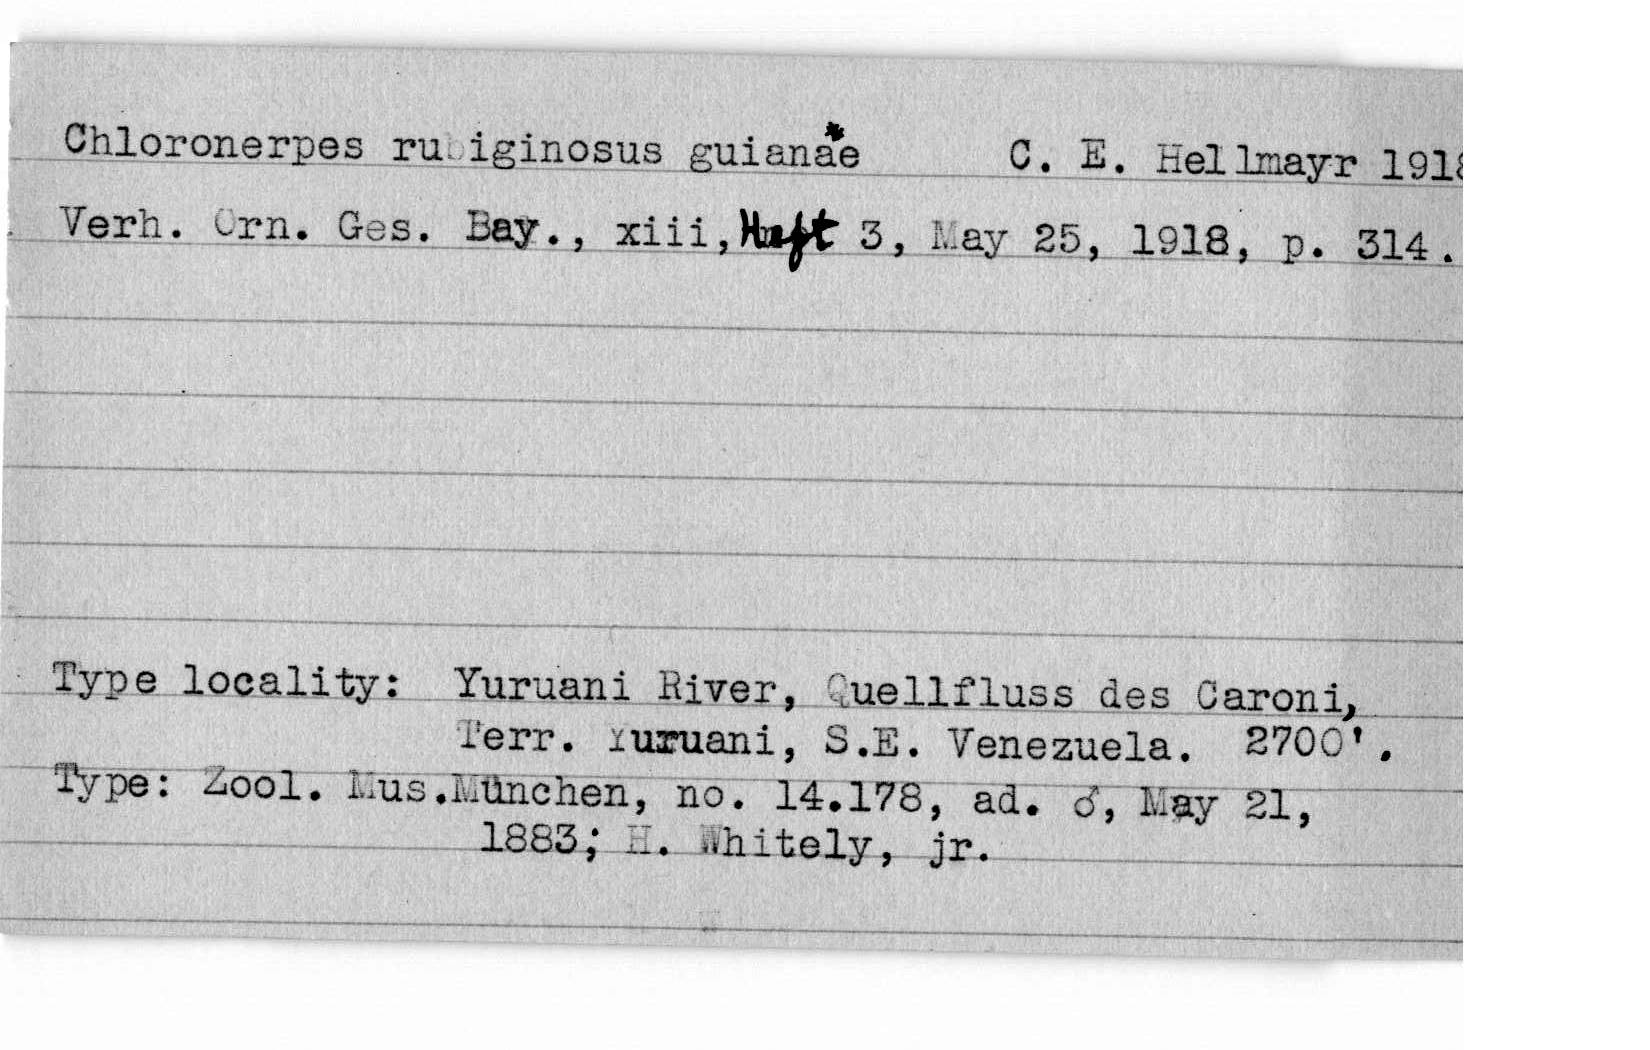 Chloronerpes rubiginosus guianae* C. E. Hellmayr 1918
Verh. Orn. Ges. Bay., xiii, Heft 3, May 25, 1918, p. 314.
Type locality: Yuruani River, Quellfluss des Caroni,
Terr. Yuruani, S.E. Venezuela. 2700'.
Type: Zool. Mus.München, no. 14.178, ad. ♂, May 21,
1883; H. Whitely, jr.